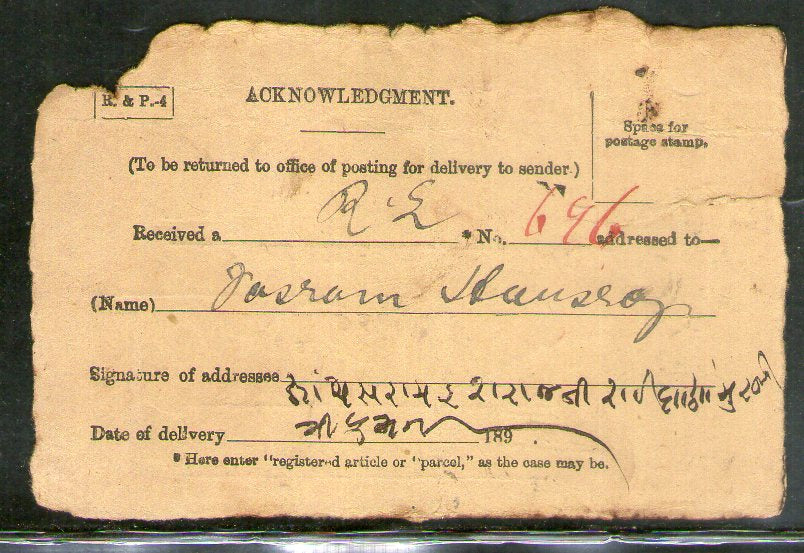 R. & P.-4
ACKNOWLEDGMENT.
Space for
postage stamp.
(To be returned to office of posting for delivery to sender.)
Received a R.L * No. 696 addressed to—
(Name) Jasram Hausraj
Signature of addressee
Date of delivery 189
* Here enter "registered article or "parcel," as the case may be.